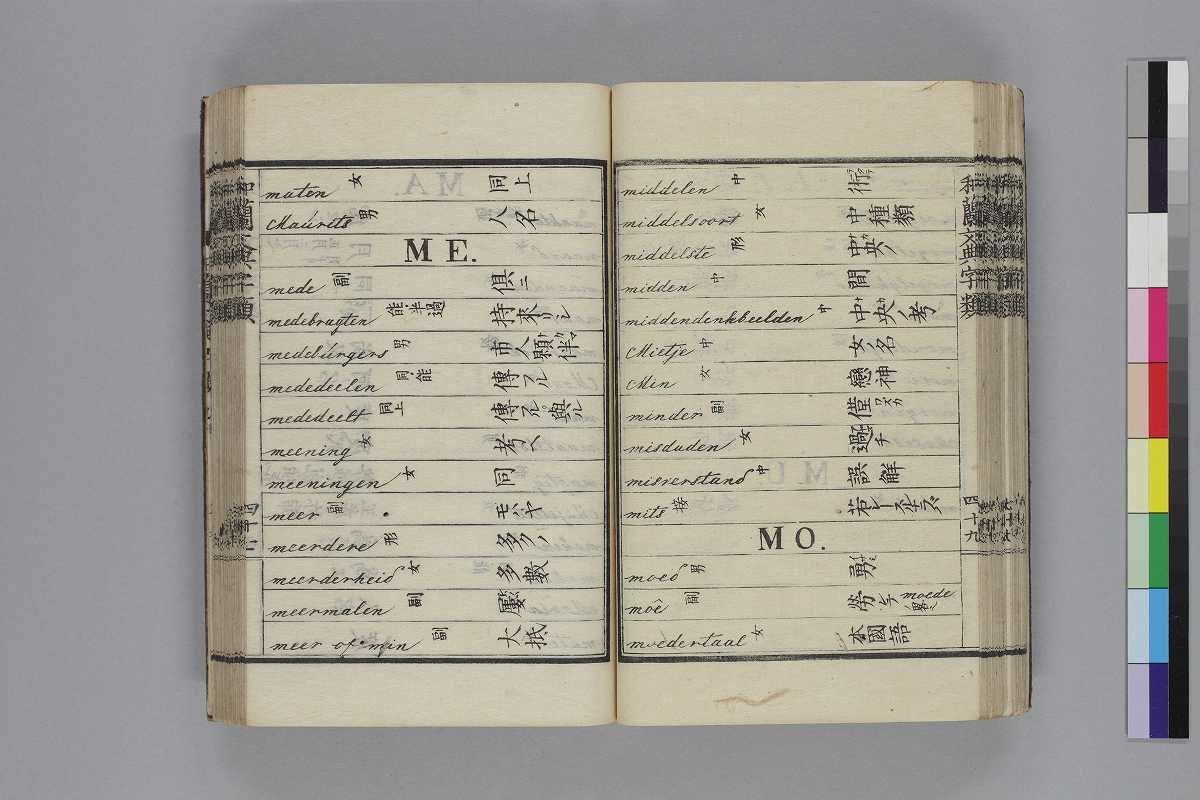 maten 女 同上
Maurits 男 人名
ME.
mede 副 倶ニ
medebragten 能半過 持來リシ
medeburgers 男 市人
mededeelen 同能 傳フル
mededeelt 同上 傳フル 與ル
meening 女 考ヘ
meeningen 女 同
meer 副 モハヤ
meerdere 形 多ノ
meerderheid 女 多數
meermalen 副 屢
meer of min 副 大抵
middelen 中 術
middelsoort 女 中種類
middelste 形 中央
midden 中 間
middendenkbeelden 中 中央ノ考
Mietje 中 女ノ名
Min 女 戀神
minder 副 僅
misdaden 女 過チ
misverstand 中 誤解
mits 接 若レ
MO.
moed 男 勇
moê 副 勞レテ moede
moedertaal 女 本國語
和蘭文典字類
四十九